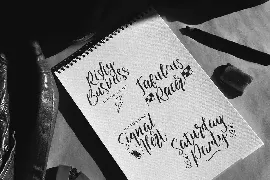 Risky
Business
Fabulous
Racer
Signal
Saturday
Party